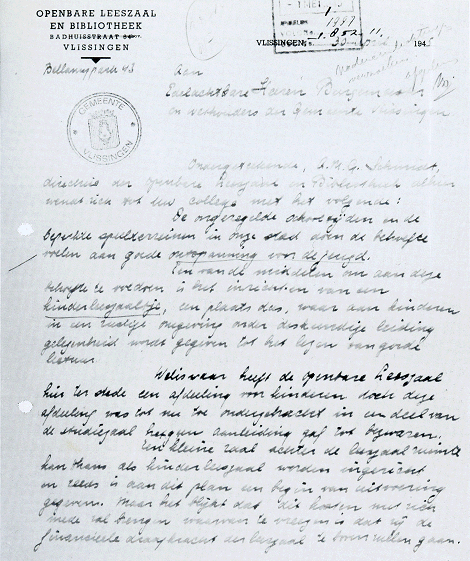 OPENBARE LEESZAAL
EN BIBLIOTHEEK
BADHUISSTRAAT
VLISSINGEN
VLISSINGEN, 194
Bellamypark 43
Aan
Edelachtbare Heeren Burgemeester
en wethouders der Gemeente Vlissingen
GEMEENTE
VLISSINGEN
Ondergeteekende, A.M.G. Schmidt,
directrice der openbare leeszaal en Bibliotheek alhier
wendt zich tot uw college met het volgende:
De ongeregelde schooltijden en de
beperkte speelterreinen in onze stad doen de behoefte
voelen aan goede ontspanning voor de jeugd.
Een van de middelen om aan deze
behoefte te voldoen is het inrichten van een
kinderleeszaaltje, een plaats dus, waar aan kinderen
in een rustige omgeving onder deskundige leiding
gelegenheid wordt gegeven tot het lezen van goede
lectuur.
Weliswaar heeft de openbare leeszaal
hier ter stede een afdeeling voor kinderen doch deze
afdeeling was tot nu toe ondergebracht in een deel van
de studiezaal hetgeen aanleiding gaf tot bezwaren.
Een kleine zaal achter de leeszaal ruimte
kan thans als kinderleeszaal worden ingericht
en reeds is aan dit plan een begin van uitvoering
gegeven. Maar het blijkt dat dit kosten met zich
mede zal brengen waarvan te vreezen is dat zij de
financieele draagkracht der leeszaal te boven zullen gaan.